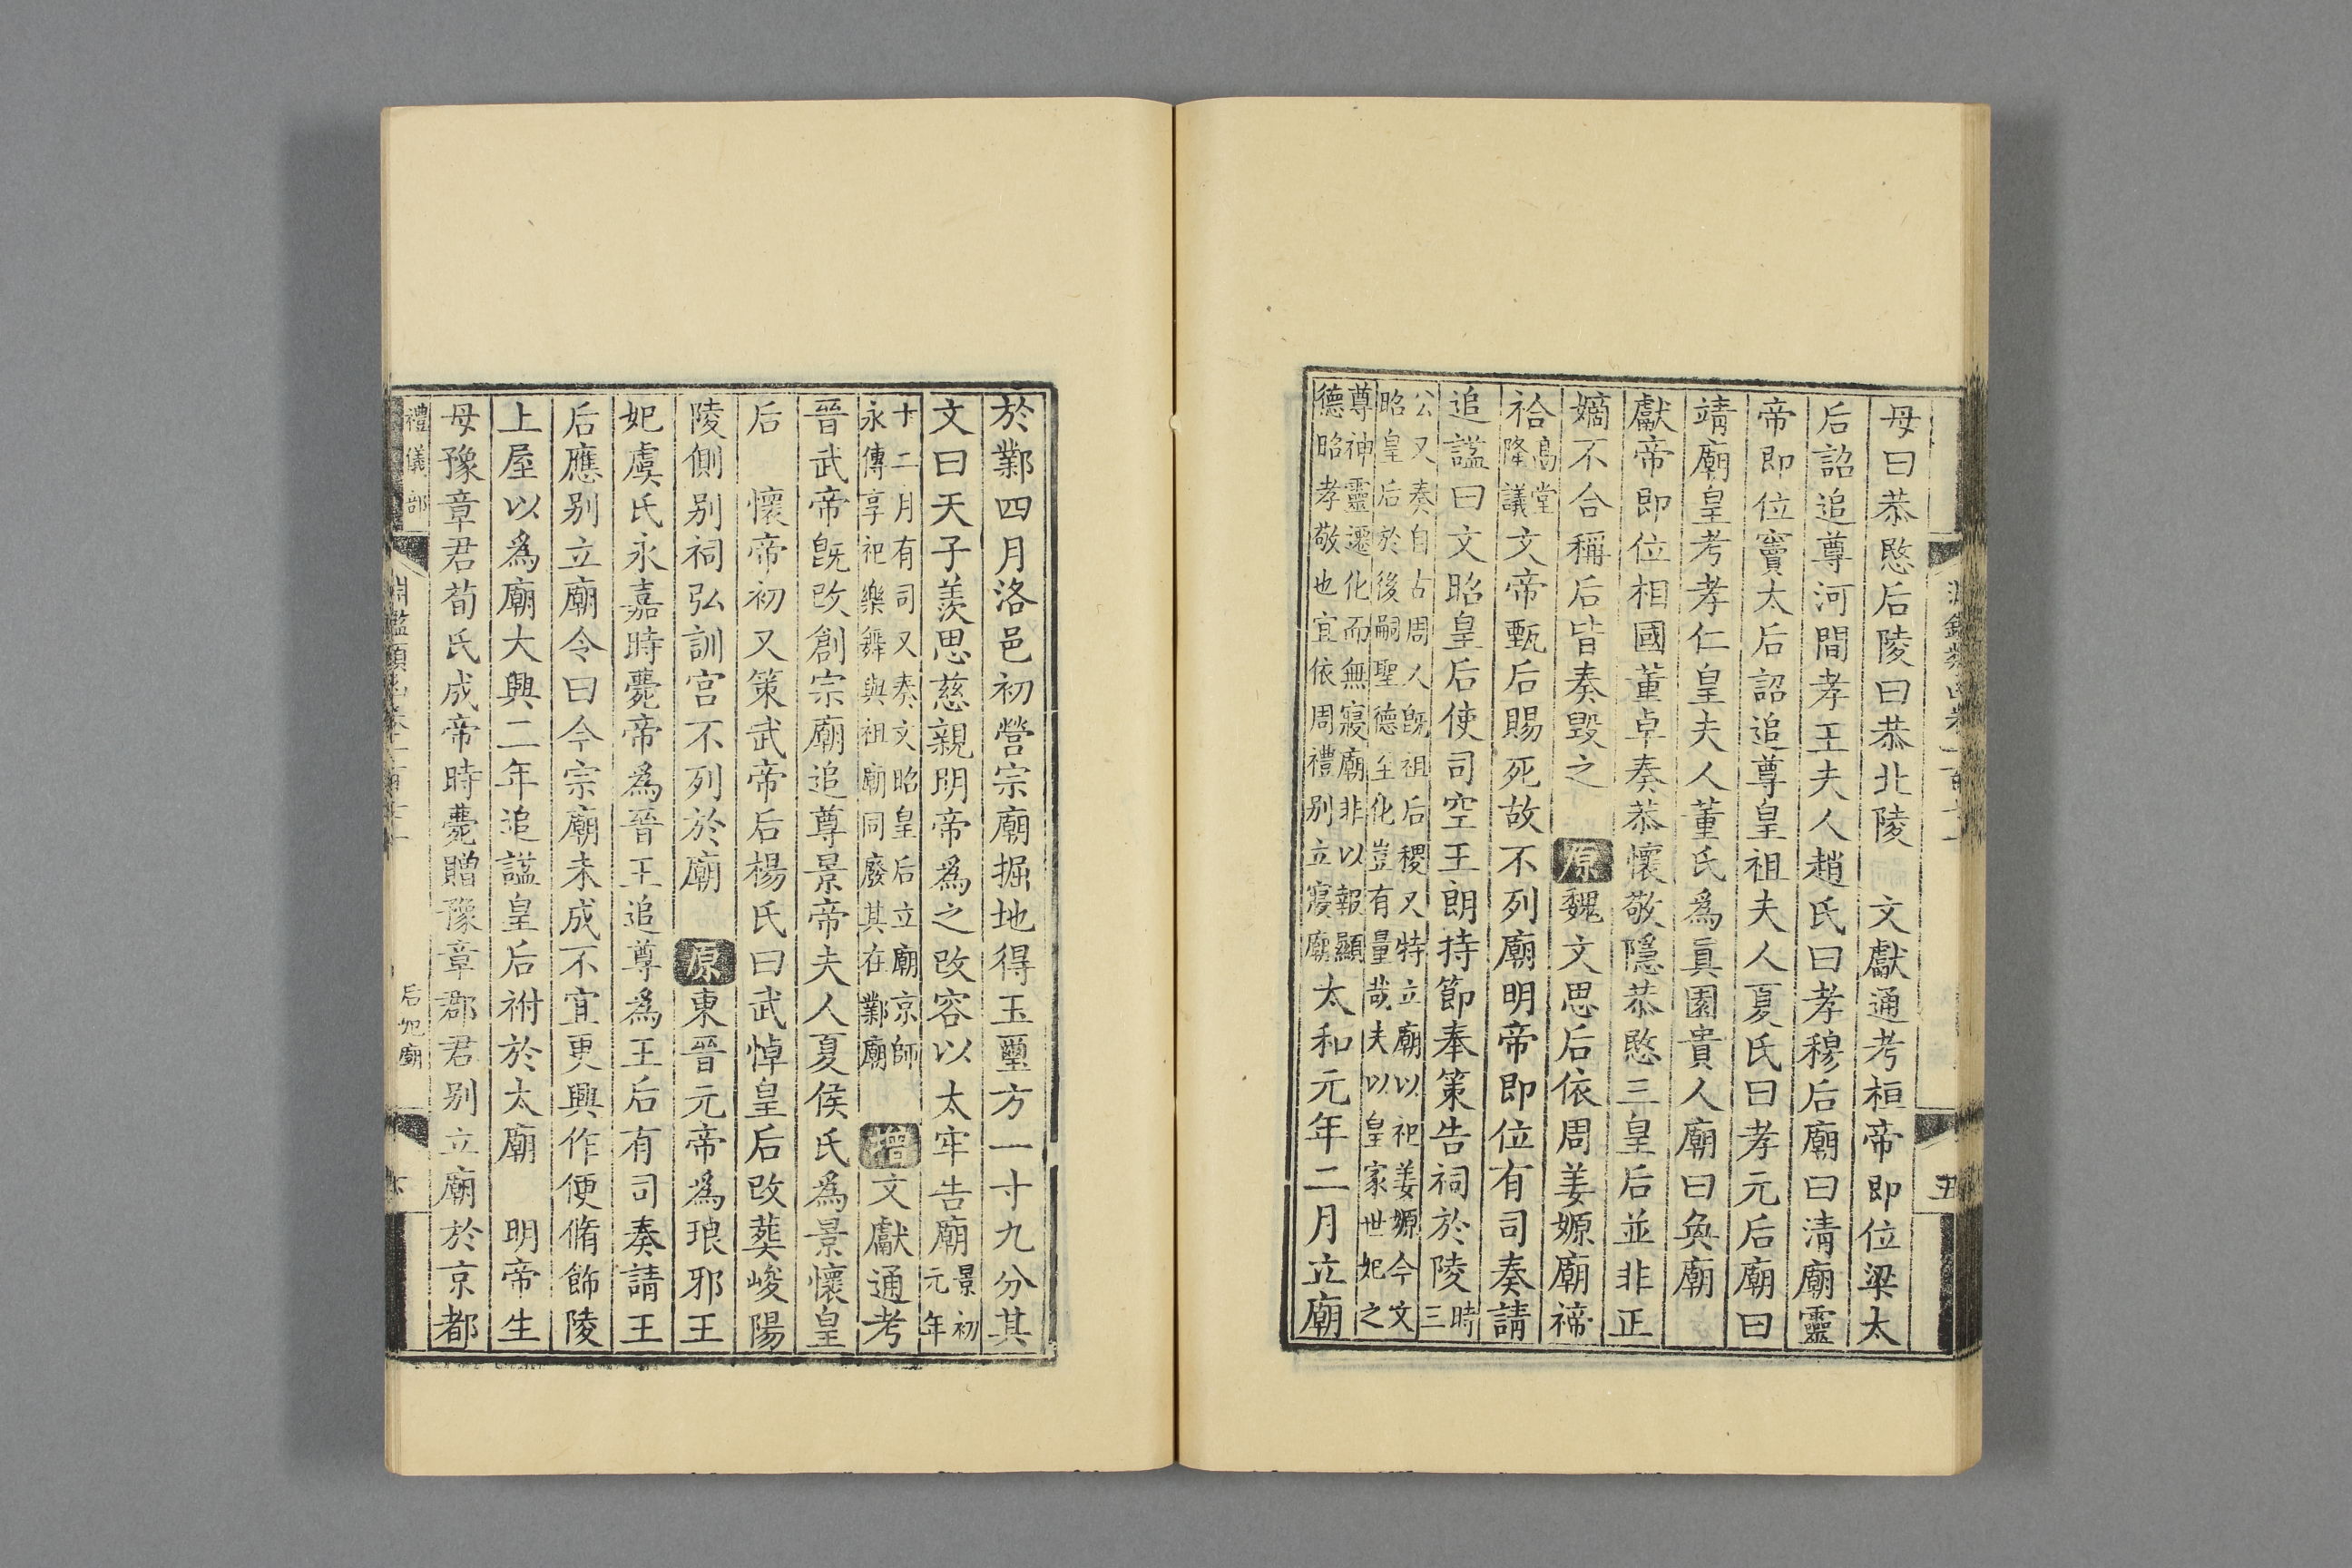 母曰恭愍后陵曰恭北陵　文獻通考桓帝即位梁太
后詔追尊河間孝王夫人趙氏曰孝穆后廟曰清廟靈
帝即位竇太后詔追尊皇祖夫人夏氏曰孝元后廟曰
靖廟皇考孝仁皇夫人董氏為眞園貴人廟曰奐廟
獻帝即位相國董卓奏恭懷敬隱恭愍三皇后並非正
嫡不合稱后皆奏毀之　原魏文思后依周姜嫄廟禘
祫高堂隆議文帝甄后賜死故不列廟明帝即位有司奏請
追謚曰文昭皇后使司空王朗持節奉策告祠於陵時三
公又奏自古周人旣祖后稷又特立廟以祀姜嫄今文
昭皇后於後嗣聖德至化豈有量哉夫以皇家世妃之
尊神靈遷化而無寢廟非以報顯
德昭孝敬也宜依周禮别立寢廟太和元年二月立廟
五
於鄴四月洛邑初營宗廟掘地得玉璽方一寸九分其
文曰天子羡思慈親明帝為之改容以太牢告廟景初元年
十二月有司又奏文昭皇后立廟京師
永傳享祀樂舞與祖廟同廢其在鄴廟　增文獻通考
晉武帝旣改創宗廟追尊景帝夫人夏侯氏為景懷皇
后　懷帝初又策武帝后楊氏曰武悼皇后改葬峻陽
陵側别祠弘訓宫不列於廟　原東晉元帝為琅邪王
妃虞氏永嘉時薨帝為晉王追尊為王后有司奏請王
后應别立廟令曰今宗廟未成不宜更興作便脩飾陵
上屋以為廟大興二年追謚皇后祔於太廟　明帝生
母豫章君荀氏成帝時薨贈豫章郡君别立廟於京都
禮儀部
后妃廟